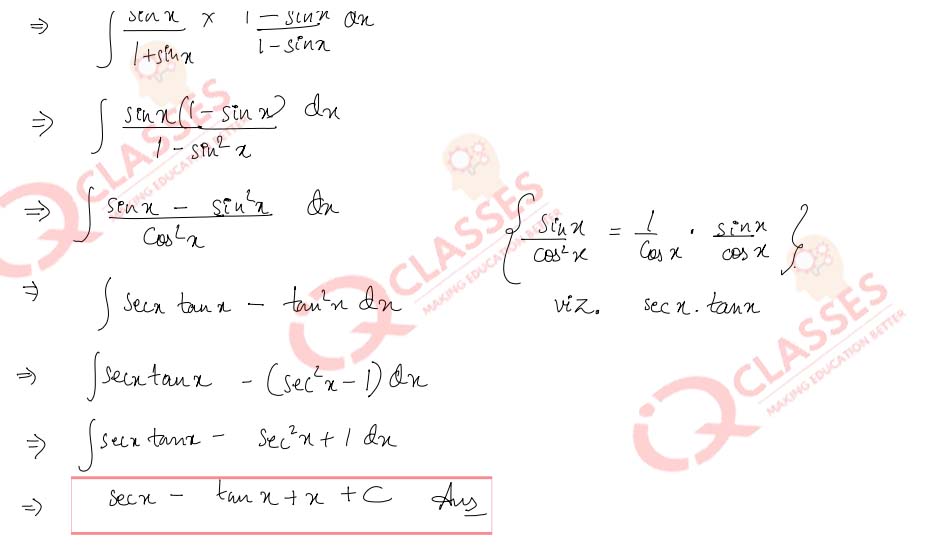 ⇒ ∫ sinx/1+sinx × 1-sinx/1-sinx dx
⇒ ∫ sinx(1-sinx)/1-sin²x dx
⇒ ∫ sinx - sin²x/Cos²x dx
{ sinx/cos²x = 1/Cosx · sinx/cosx }
⇒ ∫ secx tanx - tan²x dx
viz. secx.tanx
⇒ ∫ secxtanx - (sec²x-1) dx
⇒ ∫ secx tanx - sec²x + 1 dx
⇒ secx - tanx + x + C Ans
CLASSES
MAKING EDUCATION BETTER
CLASSES
MAKING EDUCATION BETTER
CLASSES
MAKING EDUCATION BETTER